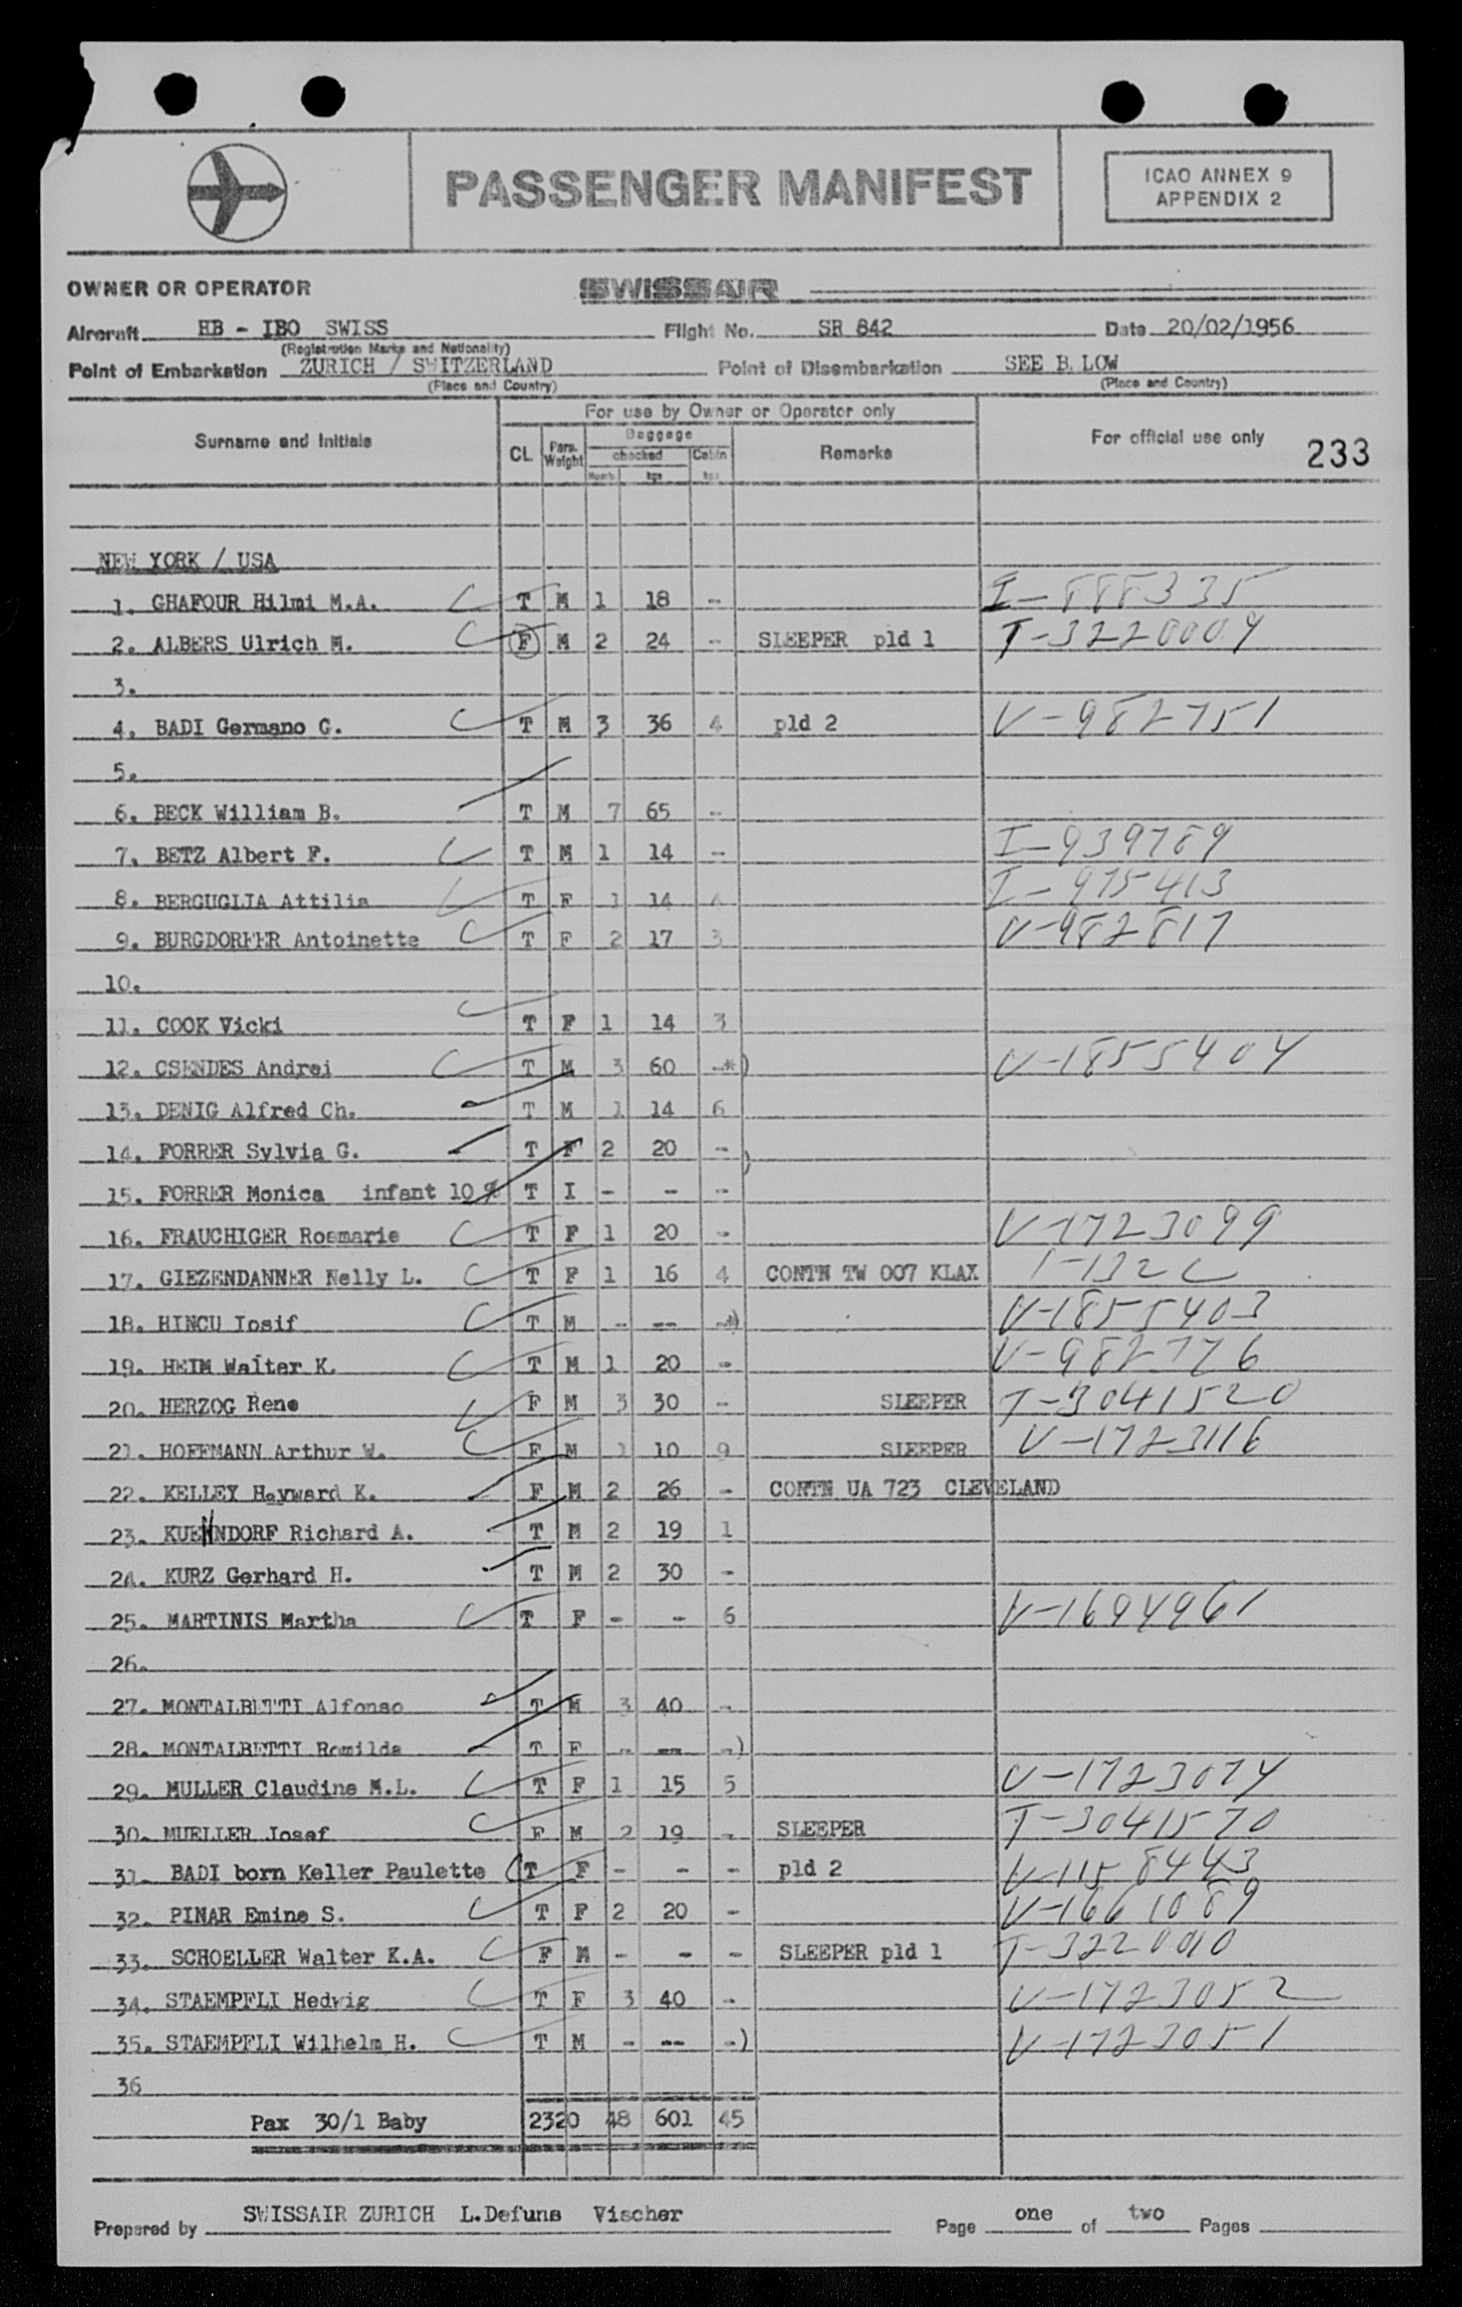 PASSENGER MANIFEST
ICAO ANNEX 9
APPENDIX 2
OWNER OR OPERATOR SWISSAIR
Aircraft HB - IBO SWISS Flight No. SR 842 Date 20/02/1956
(Registration Marks and Nationality)
Point of Embarkation ZURICH / SWITZERLAND Point of Disembarkation SEE B.LOW
(Place and Country) (Place and Country)
For use by Owner or Operator only
Surname and Initials CL Pass. Weight Baggage checked Numb. kgs Cabin kgs Remarks For official use only 233
NEW YORK / USA
1. GHAFOUR Hilmi M.A. T M 1 18 - I-888335
2. ALBERS Ulrich M. F M 2 24 - SLEEPER pld 1 T-3220004
3.
4. BADI Germano G. T M 3 36 4 pld 2 V-982751
5.
6. BECK William B. T M 7 65 -
7. BETZ Albert F. T M 1 14 - I-939789
8. BERGUGLIA Attilia T F 1 14 I-975413
9. BURGDORFER Antoinette T F 2 17 3 V-982817
10.
11. COOK Vicki T F 1 14 3
12. CSENDES Andrei T M 3 60 -*) V-1855404
13. DENIG Alfred Ch. T M 1 14 6
14. FORRER Sylvia G. T F 2 20 -)
15. FORRER Monica infant 10 % T I - - -
16. FRAUCHIGER Rosmarie T F 1 20 - V-1723099
17. GIEZENDANNER Nelly L. T F 1 16 4 CONTN TW 007 KLAX I-132c
18. HINCU Iosif T M - -- -*) V-1855403
19. HEIM Walter K. T M 1 20 - V-982776
20. HERZOG Rene F M 3 30 - SLEEPER T-3041520
21. HOFFMANN Arthur W. F M 1 10 9 SLEEPER V-1723116
22. KELLEY Hayward K. F M 2 26 - CONTN UA 723 CLEVELAND
23. KUEHNDORF Richard A. T M 2 19 1
24. KURZ Gerhard H. T M 2 30 -
25. MARTINIS Martha T F - - 6 V-1694961
26.
27. MONTALBETTI Alfonso T M 3 40 -
28. MONTALBETTI Romilda T F - -- -)
29. MULLER Claudine M.L. T F 1 15 5 V-1723074
30. MUELLER Josef F M 2 19 - SLEEPER T-3041570
31. BADI born Keller Paulette T F - - - pld 2 V-1158443
32. PINAR Emine S. T F 2 20 - V-1661089
33. SCHOELLER Walter K.A. F M - - - SLEEPER pld 1 T-3220010
34. STAEMPFLI Hedwig T F 3 40 - V-1723052
35. STAEMPFLI Wilhelm H. T M - -- -) V-1723051
36
Pax 30/1 Baby 2320 48 601 45
Prepared by SWISSAIR ZURICH L.Defuns Vischer Page one of two Pages